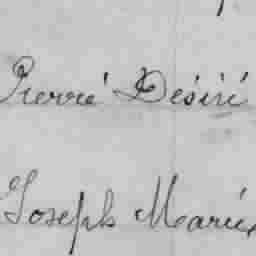 Pierre Désiré
Joseph Marie